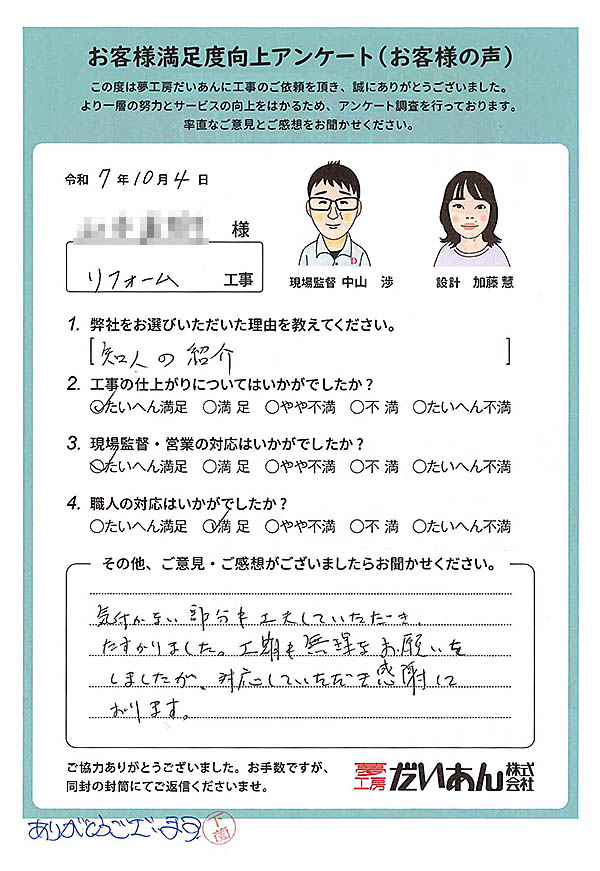 お客様満足度向上アンケート(お客様の声)
この度は夢工房だいあんに工事のご依頼を頂き、誠にありがとうございました。
より一層の努力とサービスの向上をはかるため、アンケート調査を行っております。
率直なご意見とご感想をお聞かせください。
令和 7年10月4日
様
リフォーム 工事
現場監督 中山 渉
設計 加藤 慧
1. 弊社をお選びいただいた理由を教えてください。
[知人の紹介]
2. 工事の仕上がりについてはいかがでしたか?
○たいへん満足 ○満足 ○やや不満 ○不満 ○たいへん不満
3. 現場監督・営業の対応はいかがでしたか?
○たいへん満足 ○満足 ○やや不満 ○不満 ○たいへん不満
4. 職人の対応はいかがでしたか?
○たいへん満足 ○満足 ○やや不満 ○不満 ○たいへん不満
その他、ご意見・ご感想がございましたらお聞かせください。
気付かない部分も工夫していただき、
たすかりました。工期も無理なお願いを
しましたが、対応していただき感謝して
おります。
ご協力ありがとうございました。お手数ですが、
同封の封筒にてご返信くださいませ。
夢工房 だいあん 株式会社
ありがとうございます! 下薗